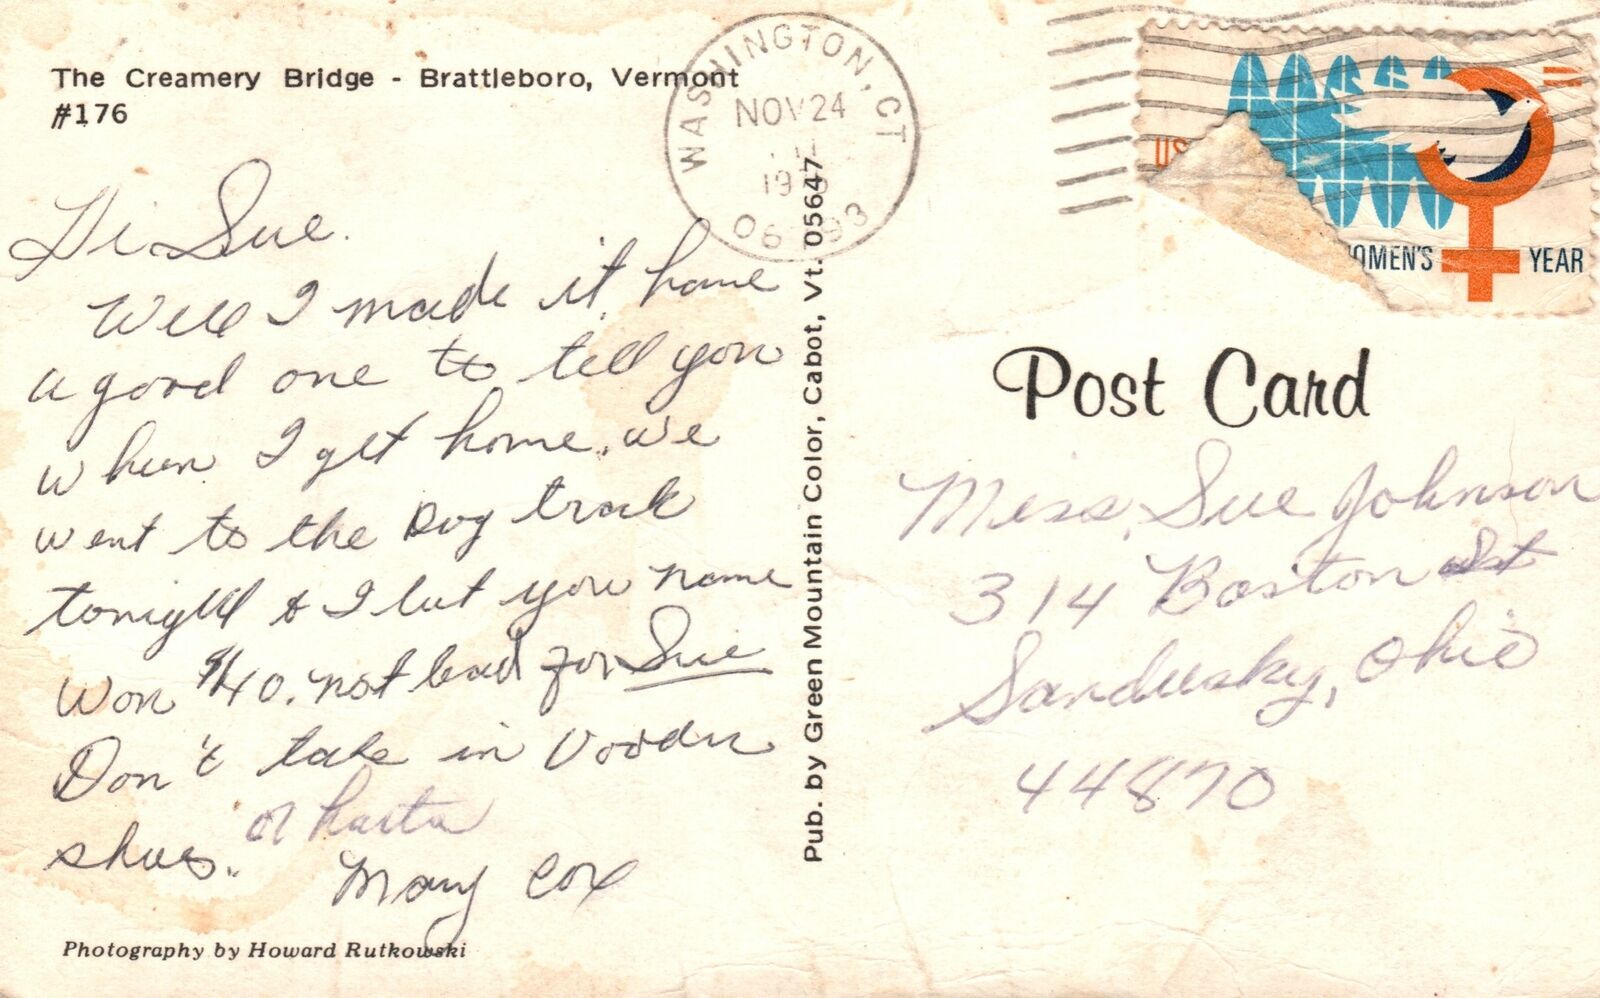 The Creamery Bridge - Brattleboro, Vermont
#176
WASHINGTON, CT
NOV 24
06793
US
WOMEN'S YEAR
Post Card
Hi Sue.
Well I made it home
a good one to tell you
when I get home. We
went to the Dog track
tonight & I bet you name
Won $140. not bad for Sue
Don't take in
shoes.
Mary Cox
Miss. Sue Johnson
314 Boston St
Sandusky, Ohio
44870
Pub. by Green Mountain Color, Cabot, Vt. 05647
Photography by Howard Rutkowski